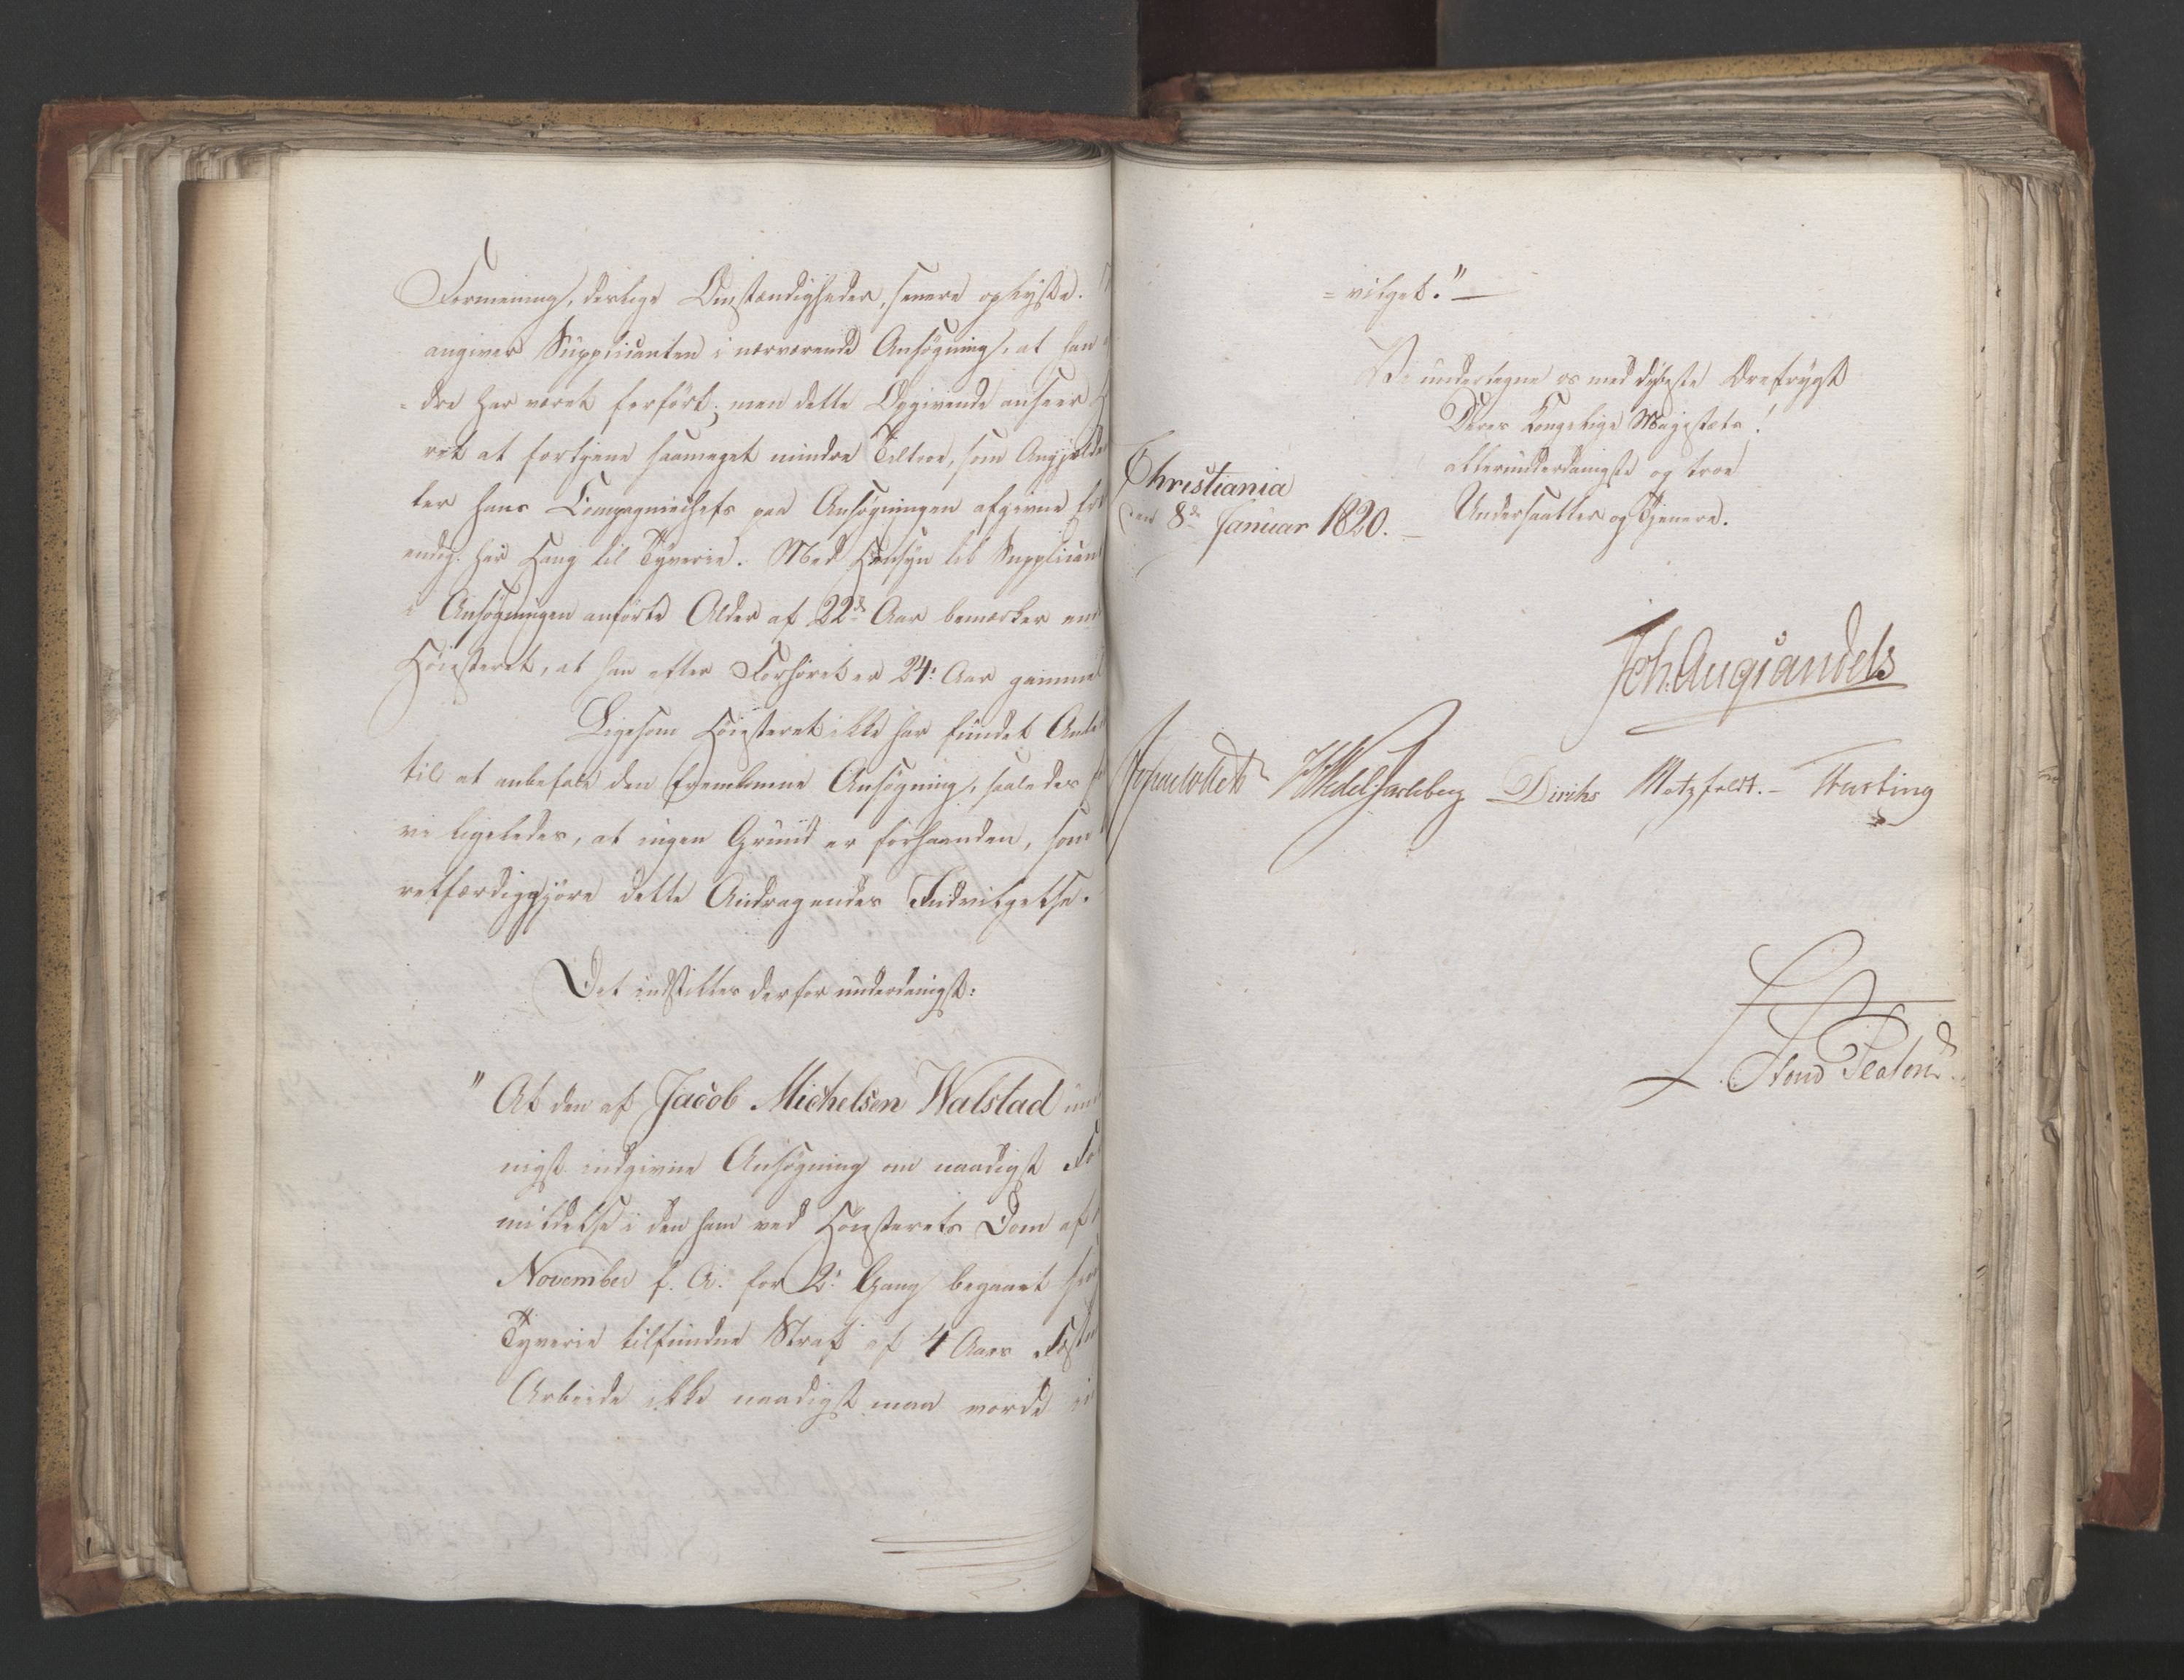 Formening, deslige Omstændigheder, senere oplyste.
angiver Supplicanten i nærværende Ansøgning, at han
-dre har været forført; men dette Opgivende anseer
ret at fortjene saameget mindre Tiltroe, som Angjelde
ter hans Compagniechefs paa Ansøgningen afgivne
endig. har Hang til Tyverie. Med Hensyn til Supplican
i Ansøgningen anførte Alder af 22de Aar bemærker
Høiesteret, at han efter Forhøret er 24: Aar gammel
Ligesom Høiesteret ikke har fundet Anle
til at anbefale den fremkomne Ansøgning, saaledes
vi ligeledes, at ingen Grund er forhaanden, som
retfærdiggjøre dette Andragendes Indvilgelse.
Det indstilles derfor underdanigst:
" At den af Jacob Michelsen Walstad und
nigst indgivne Ansøgning om naadigst For
mildelse i den ham ved Høiesterets Dom af
November f. A. for 2: Gang begaaet
Tyverie tilfundne Straf af 4 Aars Fæstn
Arbeide ikke naadigst maa vorde
= vilget." —
Vi undertegne os med dybeste Ærefrygt
Deres Kongelige Majestæts!
allerunderdanigste og troe
Undersaatter og Tjenere.
Christiania
den 8de Januar 1820. —
Joh. Aug Sandels
JCollett HWedelJarlsberg Diriks Motzfeldt. - Fasting